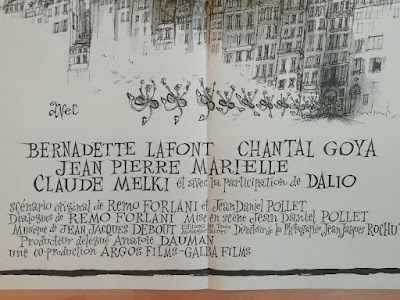 avec
BERNADETTE LAFONT CHANTAL GOYA
JEAN PIERRE MARIELLE
CLAUDE MELKI et avec la participation de DALIO
scénario original de REMO FORLANI et Jean Daniel POLLET
Dialogues de REMO FORLANI Mise en scène Jean Daniel POLLET
Musique de JEAN JACQUES DEBOUT Editions Directeur de la Photographie Jean Jacques ROCHU
Producteur délégué Anatole DAUMAN
une co-production ARGOS FILMS-GALBA FILMS